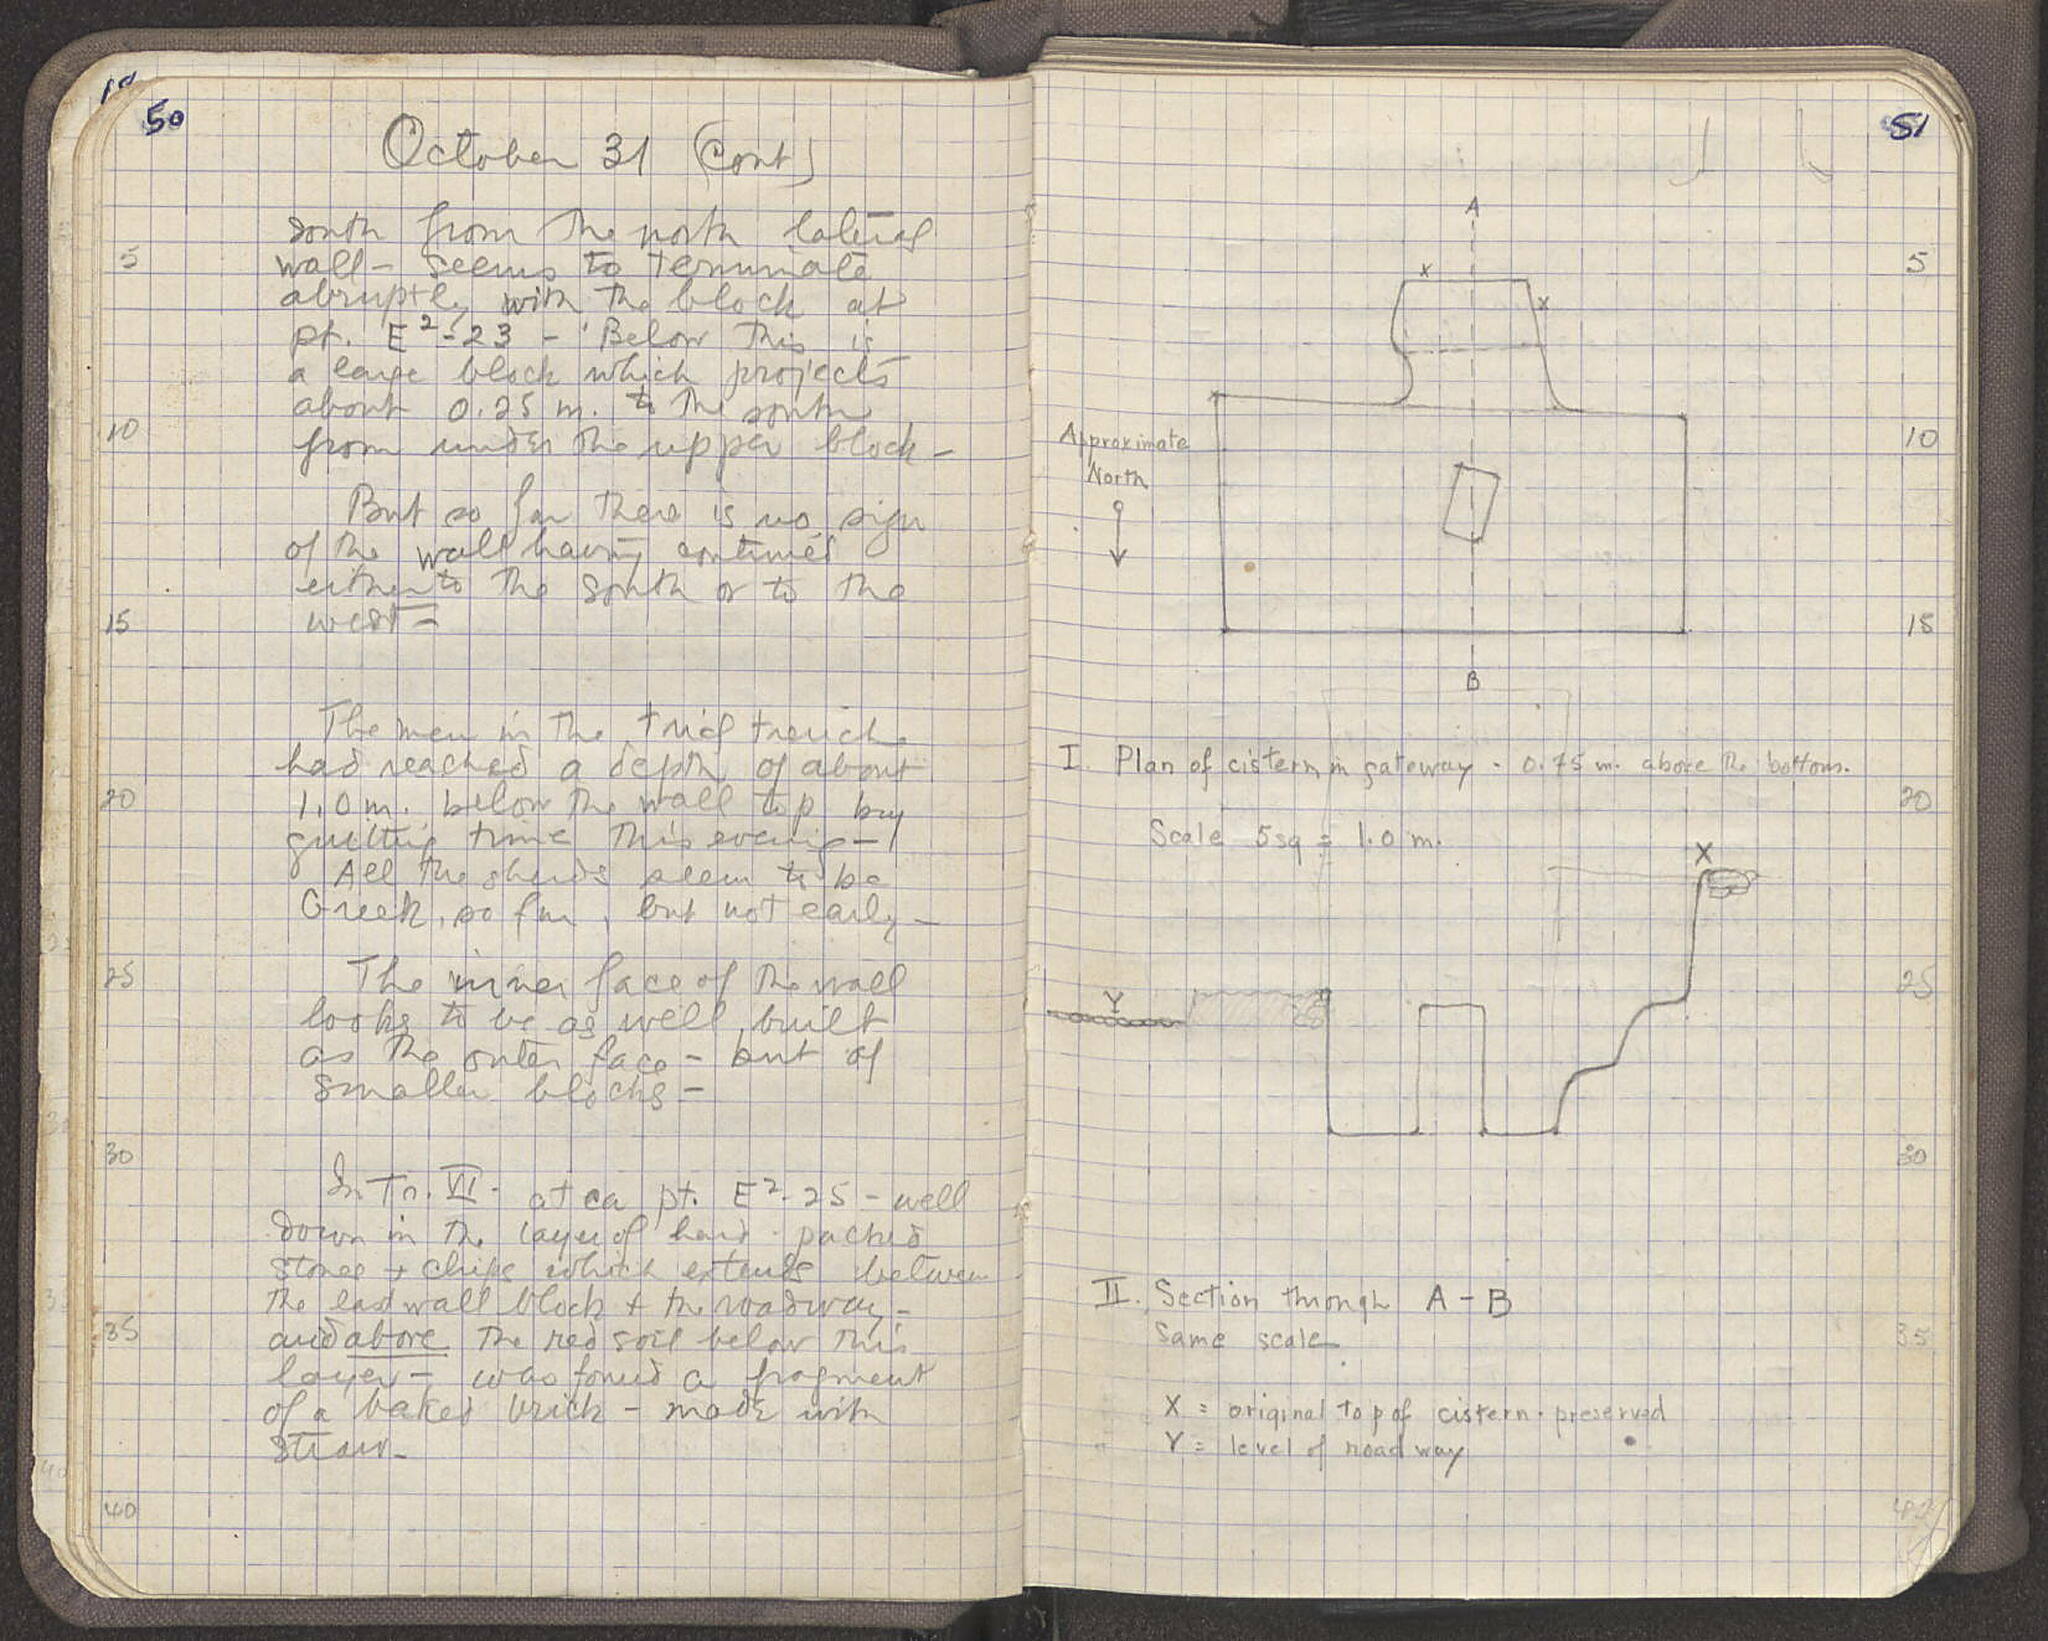 50
October 31 (cont)
south from the north lateral
5
wall - seems to terminate
abruptly with the block at
pt. E²-23 - Below this is
a large block which projects
about 0.25 m. to the south
10
from under the upper block -
But so far there is no sign
of the wall having continued
either to the south or to the
15
west -
The men in the trial trench
had reached a depth of about
20
1.0 m. below the wall top by
quitting time this evening -
All the sherds seem to be
Greek, so far, but not early -
25
The inner face of the wall
looks to be as well built
as the outer face - but of
smaller blocks -
30
In Tr. VII - at ca pt. E²-25 - well
down in the layer of hard-packed
stones + chips which extends between
the east wall block + the roadway -
35
and above the red soil below this
layer - was found a fragment
of a baked brick - made with
straw -
40
51
A
5
X
X
10
Approximate
North
15
B
I. Plan of cistern in gateway - 0.75 m. above the bottom.
20
Scale 5 sq = 1.0 m.
X
25
Y
30
II. Section through A - B
Same scale
35
X = original top of cistern - preserved
Y = level of roadway
40